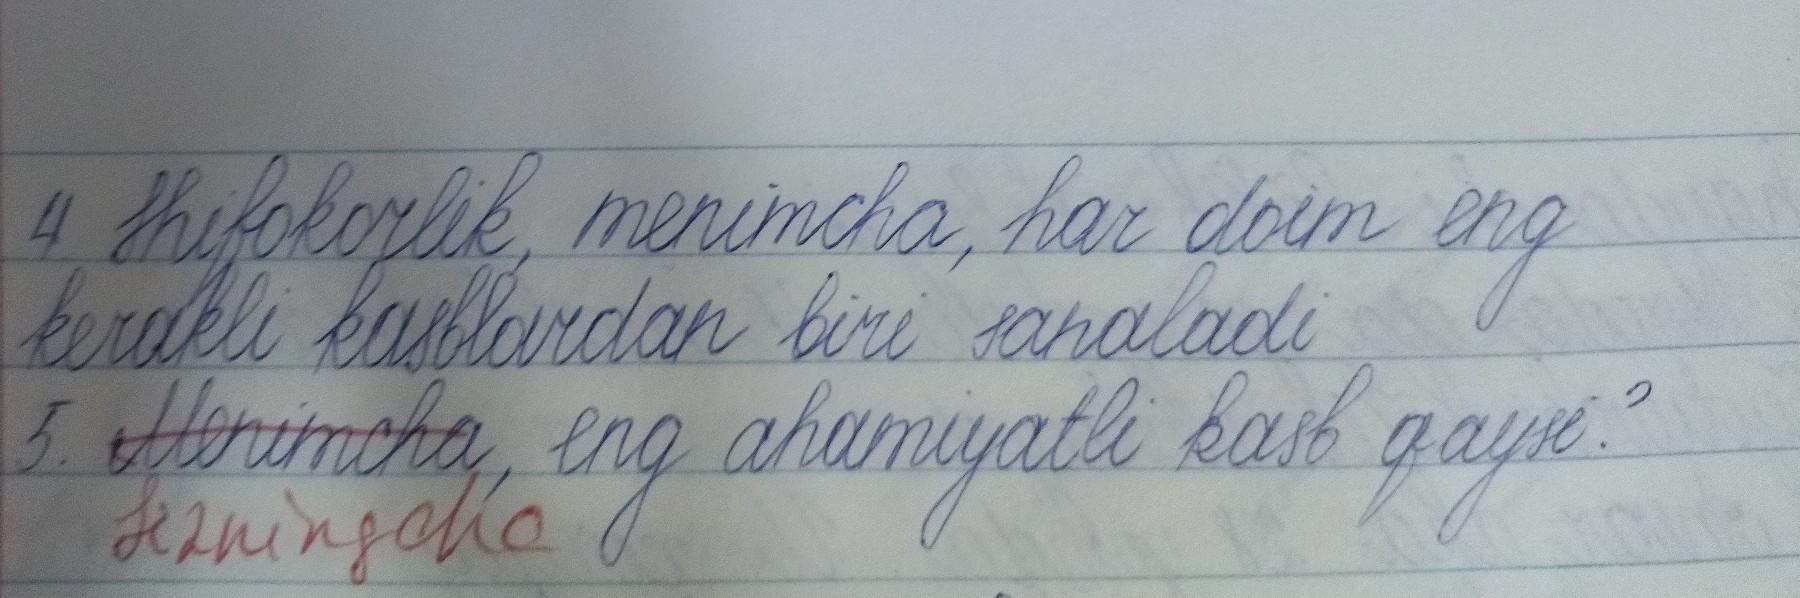 4 Shifokorlik, menimcha, har doim eng
kerakli kasblardan biri sanaladi
5. Menimcha, eng ahamiyatli kasb qaysi?
Sizningcha